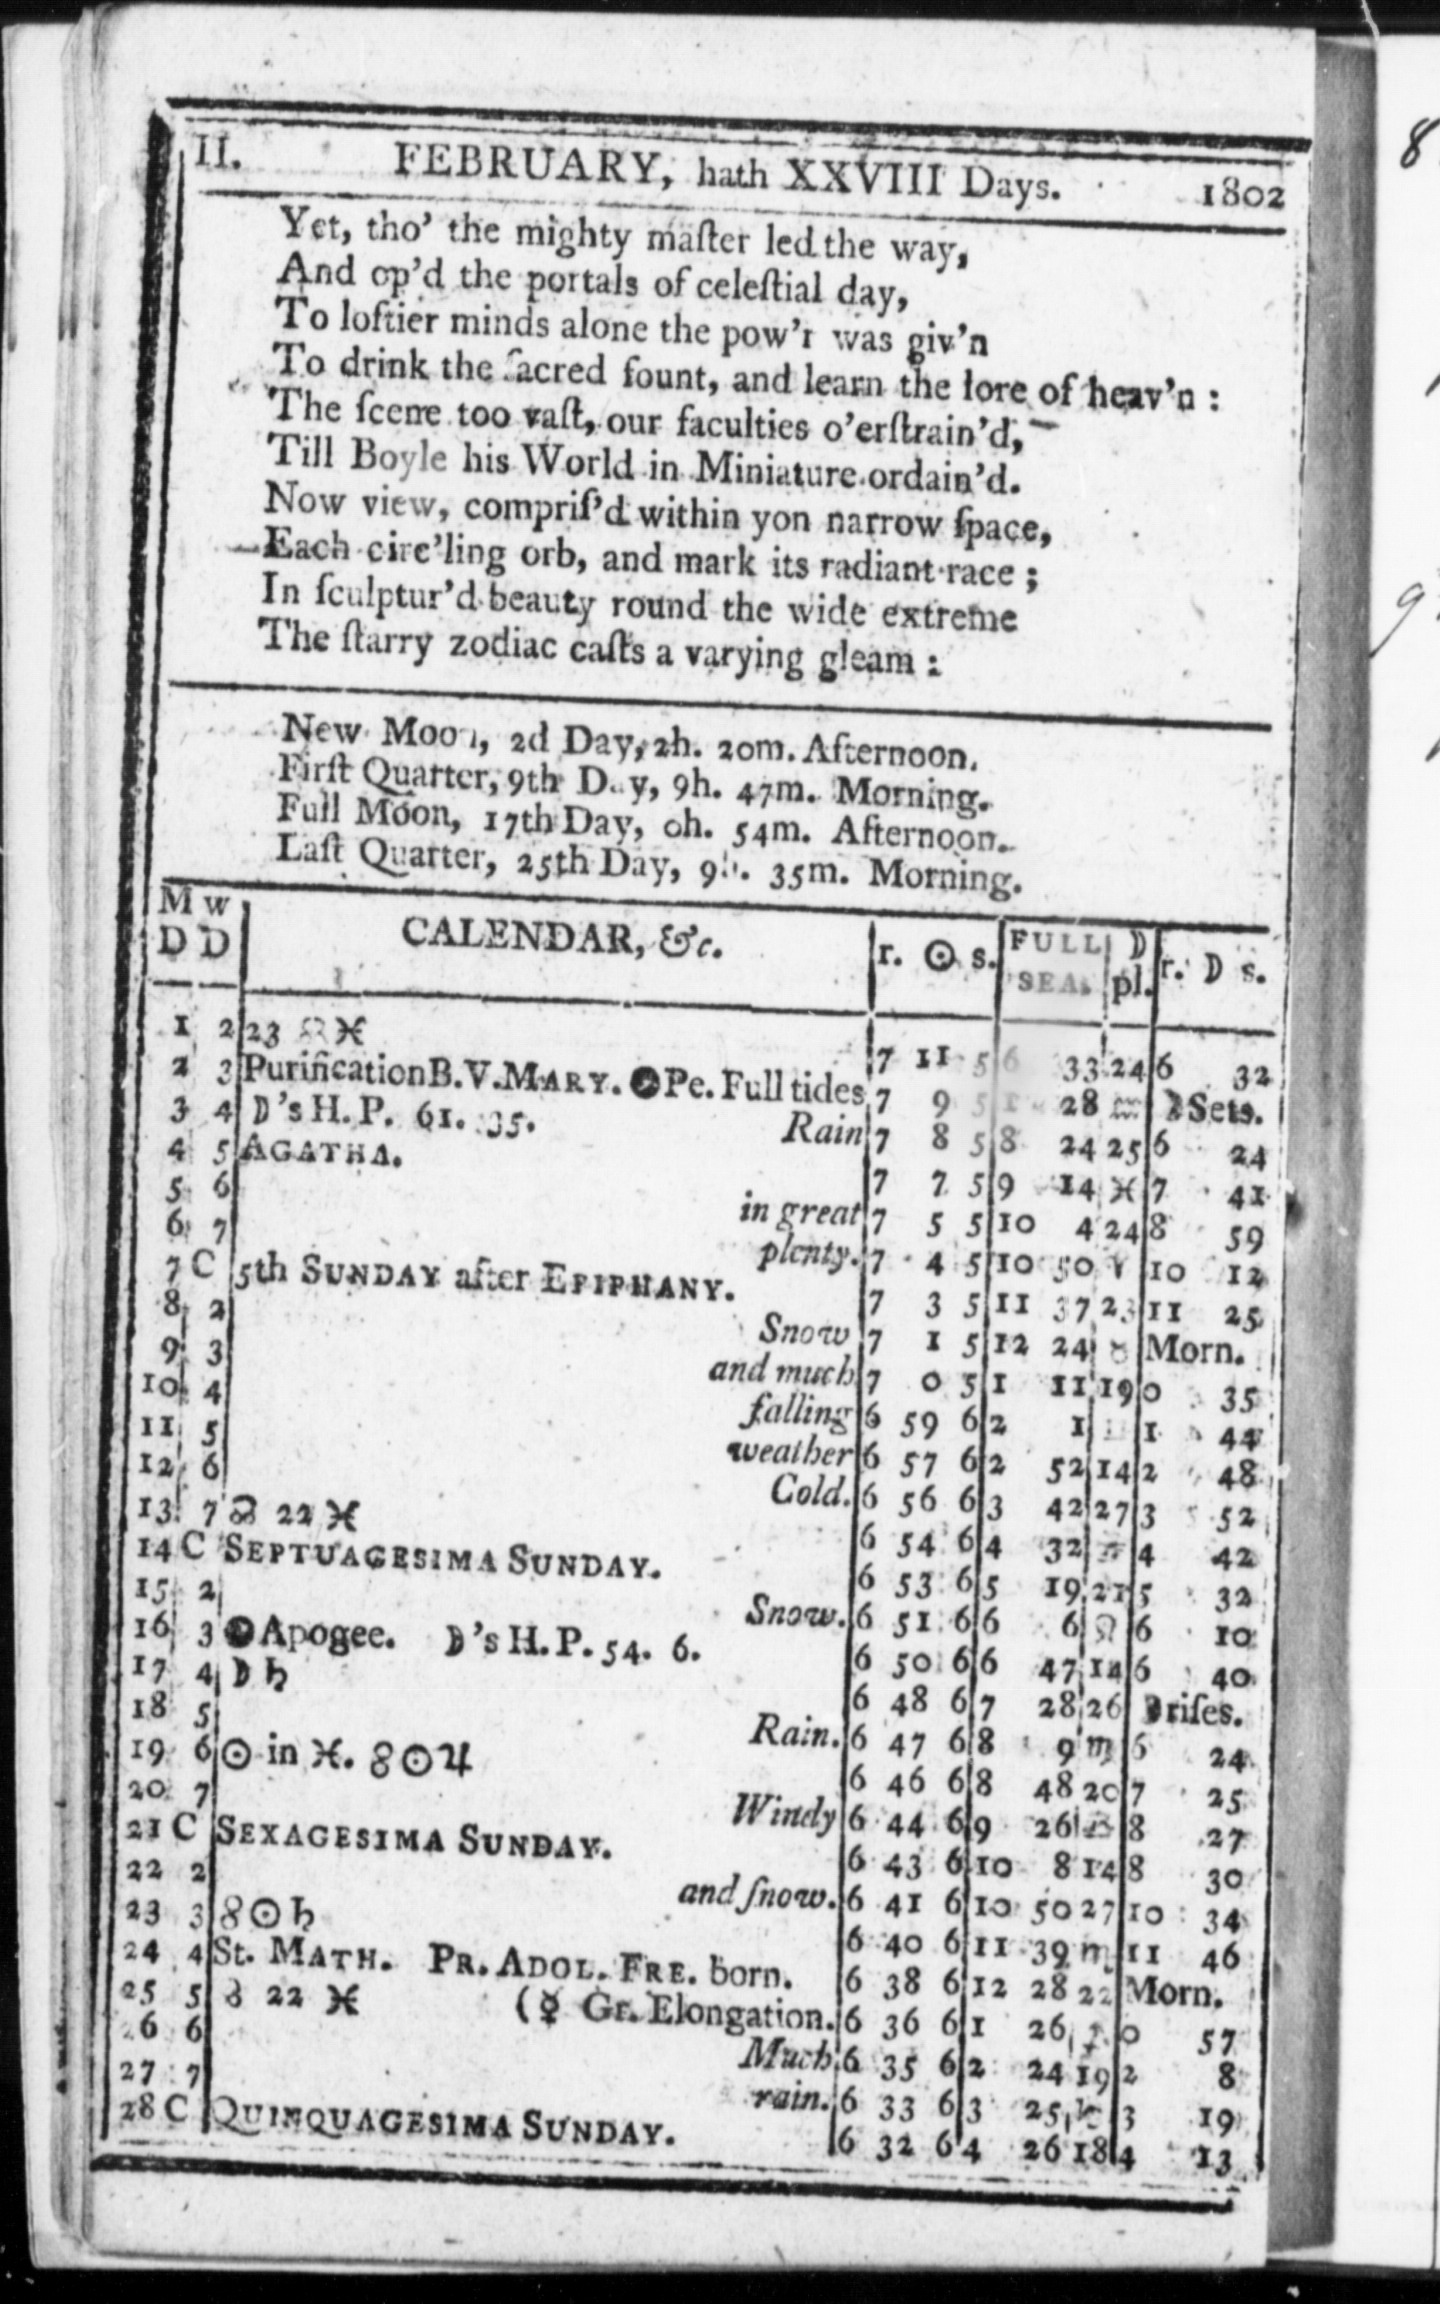 II. FEBRUARY, hath XXVIII Days. 1802
Yet, tho' the mighty maſter led the way,
And op'd the portals of celeſtial day,
To loftier minds alone the pow'r was giv'n
To drink the ſacred fount, and learn the lore of heav'n :
The ſcene too vaſt, our faculties o'erſtrain'd,
Till Boyle his World in Miniature ordain'd.
Now view, compriſ'd within yon narrow ſpace,
Each circ'ling orb, and mark its radiant race ;
In ſculptur'd beauty round the wide extreme
The ſtarry zodiac caſts a varying gleam :
New Moon, 2d Day, 2h. 20m. Afternoon.
Firſt Quarter, 9th Day, 9h. 47m. Morning.
Full Moon, 17th Day, 0h. 54m. Afternoon.
Laſt Quarter, 25th Day, 9h. 35m. Morning.
M W CALENDAR, &c. r. ☉ s. FULL ☽ r. ☽ s.
D D SEA. pl.
1 2 23 ☊ ♓ 7 11 5 6 33 24 6 32
2 3 Purification B. V. MARY. Pe. Full tides 7 9 5 28 ♒ ☽ Sets.
3 4 ☽'s H. P. 61. 35. Rain 7 8 5 8 24 25 6 24
4 5 AGATHA. 7 7 5 9 14 ♓ 7 41
5 6 in great 7 5 5 10 4 24 8 59
6 7 plenty. 7 4 5 10 50 ♈ 10 12
7 C 5th SUNDAY after EPIPHANY. 7 3 5 11 37 23 11 25
8 2 Snow 7 1 5 12 24 ♉ Morn.
9 3 and much 7 0 5 1 11 19 0 35
10 4 falling 6 59 6 2 1 1 44
11 5 weather 6 57 6 2 52 14 2 48
12 6 Cold. 6 56 6 3 42 27 3 52
13 7 ☊ 22 ♓ 6 54 6 4 32 4 42
14 C SEPTUAGESIMA SUNDAY. 6 53 6 5 19 21 5 32
15 2 Snow. 6 51 6 6 6 ♌ 6 10
16 3 Apogee. ☽'s H. P. 54. 6. 6 50 6 6 47 14 6 40
17 4 ☽ ♄ 6 48 6 7 28 26 ☽ riſes.
18 5 Rain. 6 47 6 8 9 ♍ 6 24
19 6 ☉ in ♓. ☍ ☉ ♃ 6 46 6 8 48 20 7 25
20 7 Windy 6 44 6 9 26 ♎ 8 27
21 C SEXAGESIMA SUNDAY. 6 43 6 10 8 14 8 30
22 2 and ſnow. 6 41 6 10 50 27 10 34
23 3 ☍ ☉ ♄ 6 40 6 11 39 ♏ 11 46
24 4 St. MATH. PR. ADOL. FRE. born. 6 38 6 12 28 22 Morn.
25 5 22 ♓ (☿ Gr. Elongation. 6 36 6 1 26 ♐ 0 57
26 6 Much 6 35 6 2 24 19 2 8
27 7 rain. 6 33 6 3 25 ♑ 3 19
28 C QUINQUAGESIMA SUNDAY. 6 32 6 4 26 18 4 13